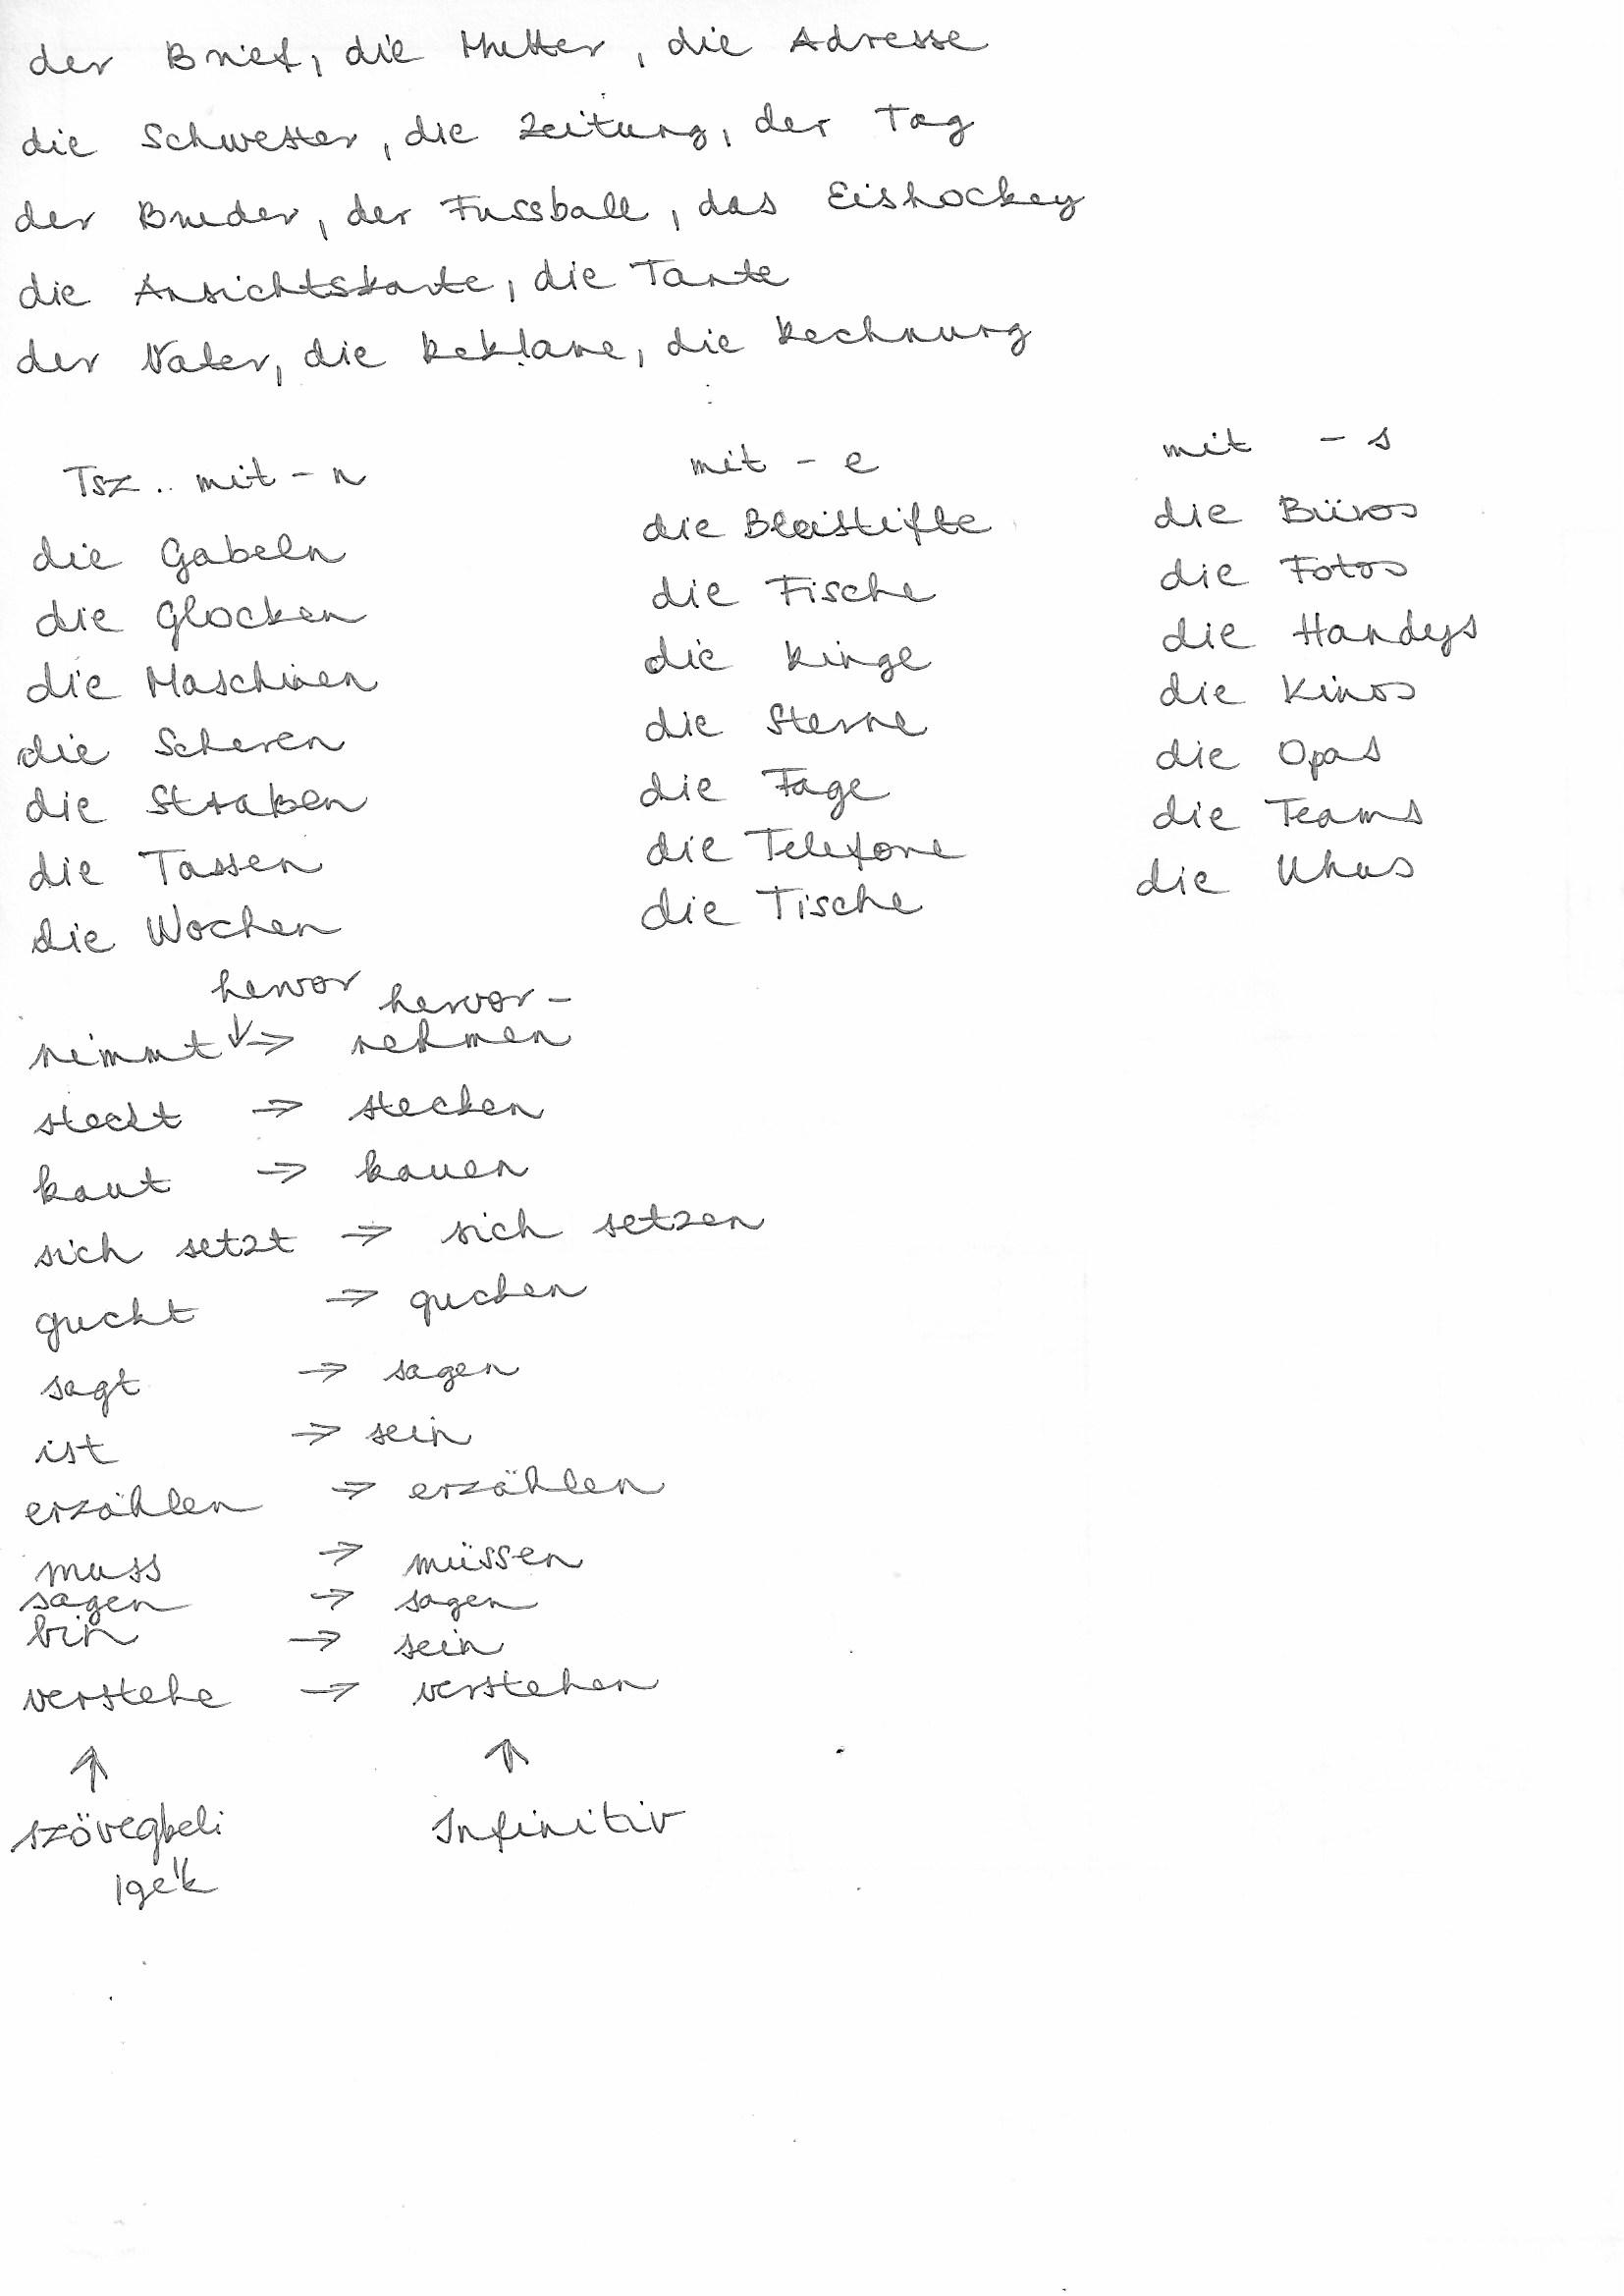 der Brief, die Mutter, die Adresse
die Schwester, die Zeitung, der Tag
der Bruder, der Fussball, das Eishockey
die Ansichtskarte, die Tante
der Vater, die Reklame, die Rechnung
Tsz.. mit -n
die Gabeln
die Glocken
die Maschinen
die Scheren
die Straßen
die Tassen
die Wochen
mit - e
die Bleistifte
die Fische
die Ringe
die Sterne
die Tage
die Telefone
die Tische
mit - s
die Büros
die Fotos
die Handys
die Kinos
die Opas
die Teams
die Uhus
hervor hervor-
nimmt ↓ ⇒ nehmen
steckt ⇒ stecken
kaut ⇒ kauen
sich setzt ⇒ sich setzen
guckt ⇒ gucken
sagt ⇒ sagen
ist ⇒ sein
erzählen ⇒ erzählen
muss ⇒ müssen
sagen ⇒ sagen
bin ⇒ sein
verstehe ⇒ verstehen
↑ ↑
szövegbeli Infinitiv
igék